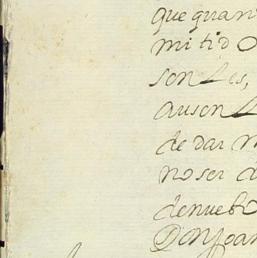 que quan
mi tio
son Les,
ausen
de dar m
no ser d
denuebo
Don Joan